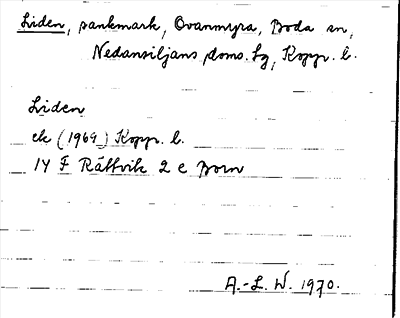 Liden, sankmark, Ovanmyra, Boda sn,
Nedansiljans doms. Lg, Kopp. l.
Liden
ek (1969) Kopp. l.
14 F Rättvik 2 e
A.-L. W. 1970.